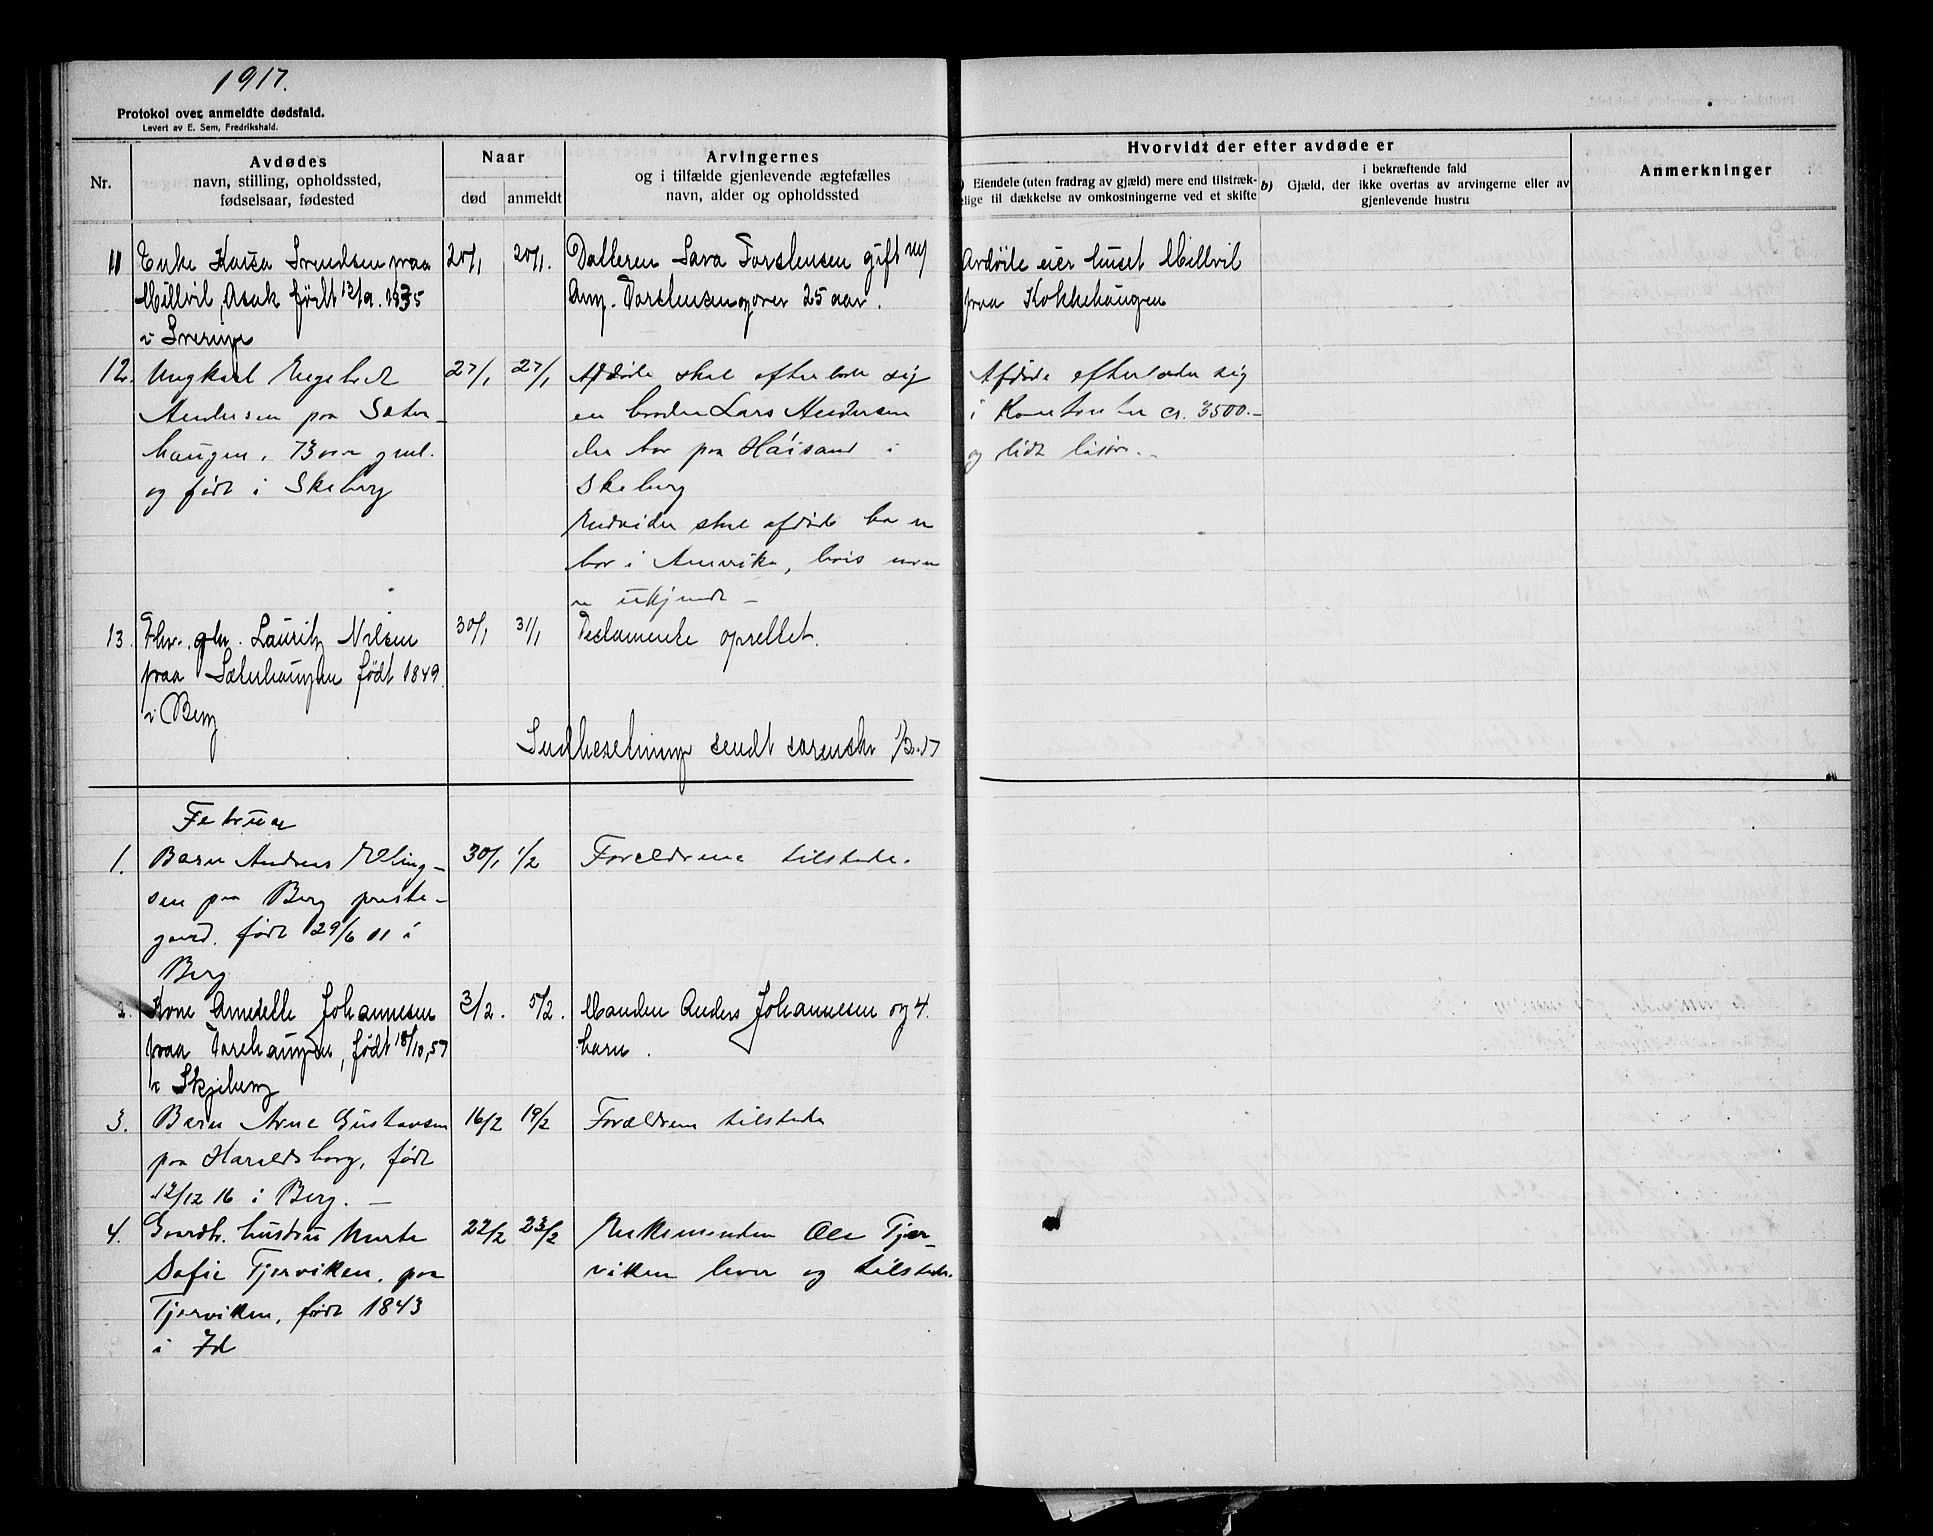 1917.
Protokol over anmeldte dødsfald.
Levert av E. Sem, Fredrikshald.
Nr.
Avdødes
navn, stilling, opholdssted,
fødselsaar, fødested
Naar
død
anmeldt
Arvingernes
og i tilfælde gjenlevende ægtefælles
navn, alder og opholdssted
Hvorvidt der efter avdøde er
Eiendele (uten fradrag av gjæld) mere end tilstræk-
elige til dækkelse av omkostningerne ved et skifte
b) Gjæld, der
i bekræftende fald
ikke overtas av arvingerne eller av
gjenlevende hustru
Anmerkninger
11
Enke Kaisa Svendsen paa
Millvil, Asak født 12/9. 1835
i Sverige
20/1
20/1.
Datteren Sara Torstensen gift m/
Torstensen og over 25 aar.
Avdøde eier huset Millvil
paa Kokkehaugen
12.
Ungkarl Engebret
Andersen paa Sæter-
haugen, 73 aar gml.
og født i Skeberg
27/1
27/1
Afdøde skal efterlade sig
en broder Lars Andersen
der bor paa Høisand i
Skeberg
Endvider skal afdøde ha en
bor i Amerika, hvis navn
er ukjendt –
Afdøde efterlader sig
i Kontanter cr. 3500.–
og lidt løsøre.
13.
Lauritz Nilsen
paa Sæterhaugen født 1849
i Berg
30/1
31/1
Testamente oprettet.
Indberetning sendt sorenskr 1/2.17
Februar
1.
Barn Andreas Elling-
sen paa Berg preste-
gaard. født 29/6 11 i
Berg
30/1
1/2
Forældrene tilstede.
2.
Kone Annette Johannesen
paa Torehaugen, født 18/10, 57
i Skjeberg
3/2.
5/2.
Manden Anders Johannesen og 4
barn.
3.
Barn Arne Gustavsen
paa Haraldsborg, født
12/12 16 i Berg. –
16/2
19/2
Forældrene tilstede
4.
Gaardb. hustru Marte
Sofie Tjerviken. paa
Tjerviken, født 1843
i Id
22/2
23/2
Enkemanden Ole Tjer-
viken lever og tilstede.